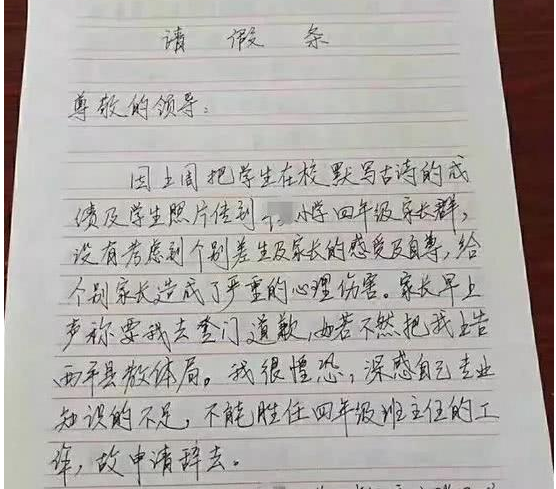 请假条
尊敬的领导:
因上周把学生在校默写古诗的成
绩及学生照片传到 小学四年级家长群,
没有考虑到个别差生及家长的感受及自尊,给
个别家长造成了严重的心理伤害。家长早上
声称要我去登门道歉,如若不然把我上告
西平县教体局。我很惶恐,深感自己专业
知识的不足,不能胜任四年级班主任的工
作,故申请辞去。